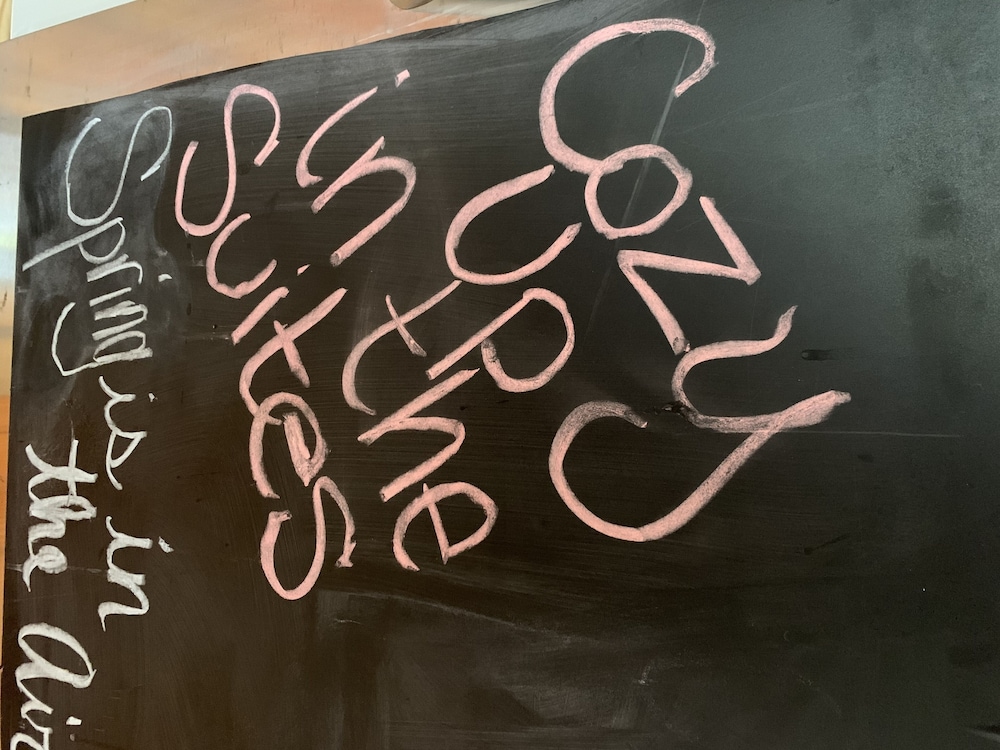 Cozy
up
in the
Suites
Spring is in
the Air